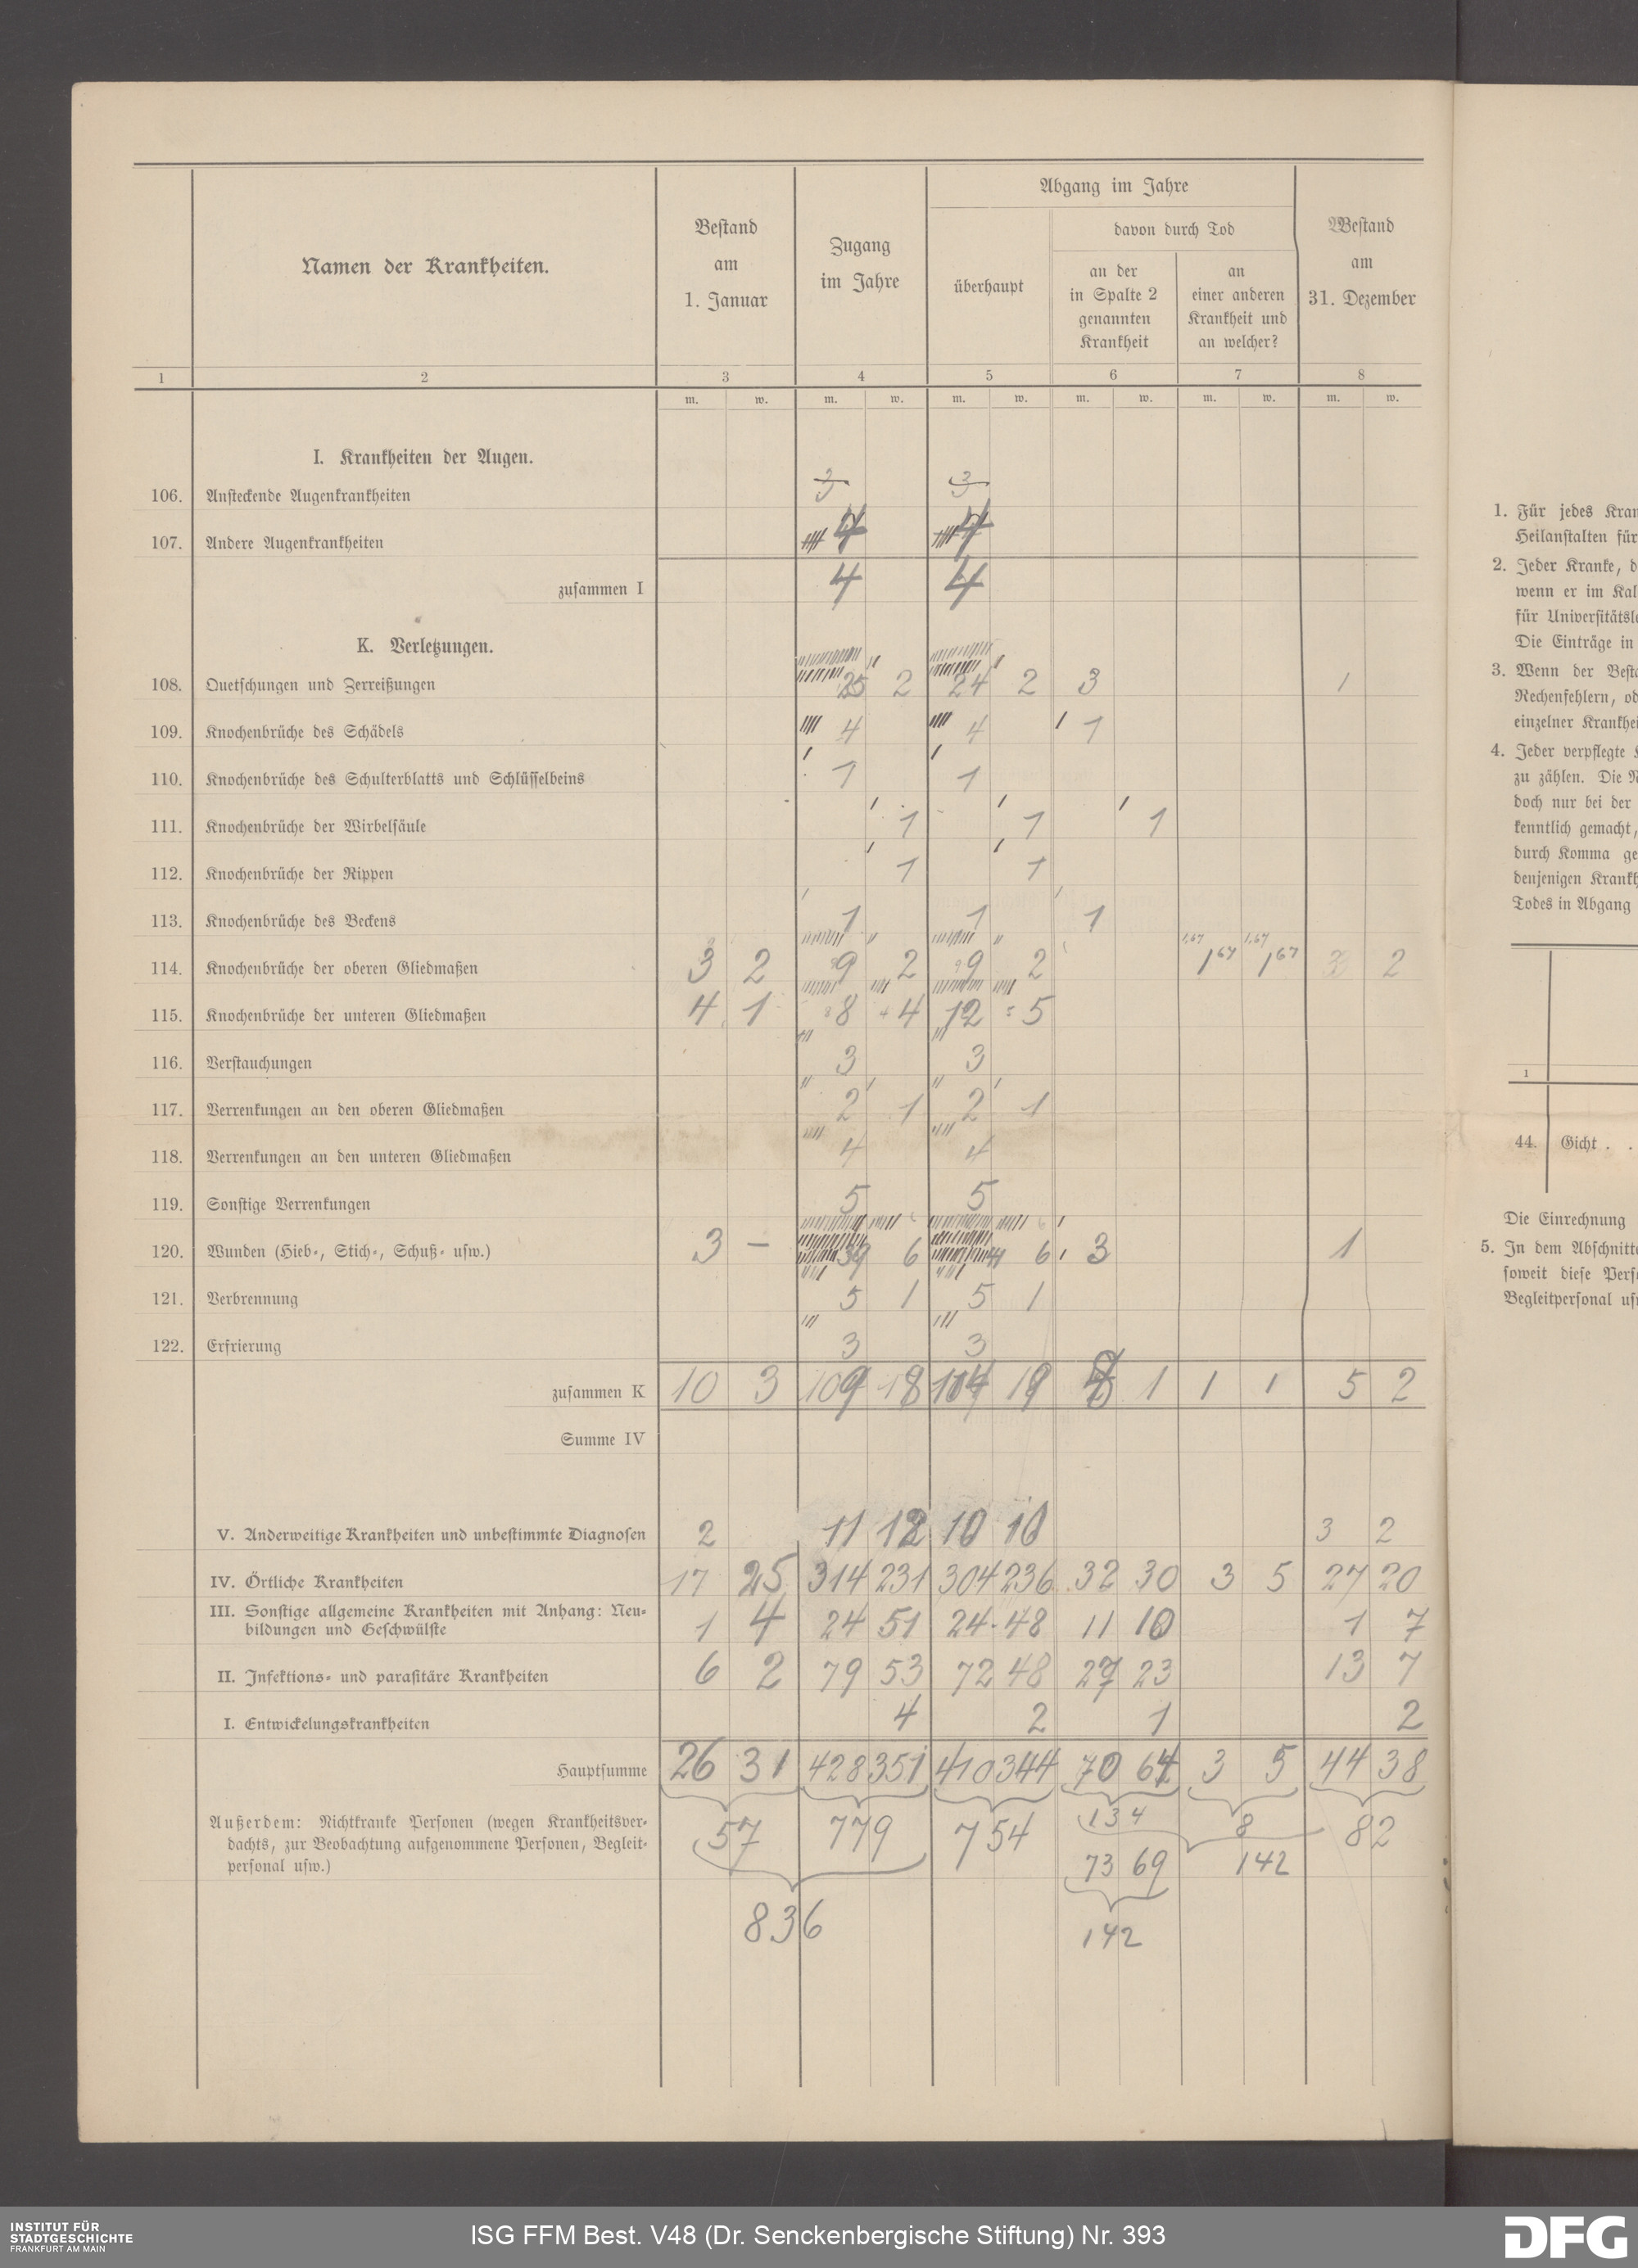 Abgang im Jahre
Namen der Krankheiten.
Bestand am 1. Januar
Zugang im Jahre
überhaupt
davon durch Tod
an der in Spalte 2 genannten Krankheit
an einer anderen Krankheit und an welcher?
Bestand am 31. Dezember
1 2 3 4 5 6 7 8
m. w. m. w. m. w. m. w. m. w. m. w.
I. Krankheiten der Augen.
106. Ansteckende Augenkrankheiten 3 3
107. Andere Augenkrankheiten 4 4
zusammen I 4 4
K. Verletzungen.
108. Quetschungen und Zerreißungen 25 2 24 2 3 1
109. Knochenbrüche des Schädels 4 4 1
110. Knochenbrüche des Schulterblatts und Schlüsselbeins 1 1
111. Knochenbrüche der Wirbelsäule 1 1 1
112. Knochenbrüche der Rippen 1 1
113. Knochenbrüche des Beckens 1 1 1
114. Knochenbrüche der oberen Gliedmaßen 3 2 9 2 9 2 1,67 1,67 1 67 1 67 3 2
115. Knochenbrüche der unteren Gliedmaßen 4 1 8 4 12 5
116. Verstauchungen 3 3
117. Verrenkungen an den oberen Gliedmaßen 2 1 2 1
118. Verrenkungen an den unteren Gliedmaßen 4 4
119. Sonstige Verrenkungen 5 5
120. Wunden (Hieb-, Stich-, Schuß- usw.) 3 – 39 6 6 3 1
121. Verbrennung 5 1 5 1
122. Erfrierung 3 3
zusammen K 10 3 109 18 104 19 1 1 1 5 2
Summe IV
V. Anderweitige Krankheiten und unbestimmte Diagnosen 2 11 12 10 10 3 2
IV. Örtliche Krankheiten 17 25 314 231 304 236 32 30 3 5 27 20
III. Sonstige allgemeine Krankheiten mit Anhang: Neu-
bildungen und Geschwülste 1 4 24 51 24 48 11 10 1 7
II. Infektions- und parasitäre Krankheiten 6 2 79 53 72 48 27 23 13 7
I. Entwickelungskrankheiten 4 2 1 2
Hauptsumme 26 31 428 351 410 344 70 64 3 5 44 38
Außerdem: Nichtkranke Personen (wegen Krankheitsver-
dachts, zur Beobachtung aufgenommene Personen, Begleit-
personal usw.)
57 779 754 134 8 82
73 69 142
836 142
1. Für jedes Kran
Heilanstalten für
2. Jeder Kranke, d
wenn er im Kal
für Universitätskl
Die Einträge in
3. Wenn der Besta
Rechenfehlern, od
einzelner Krankhei
4. Jeder verpflegte K
zu zählen. Die N
doch nur bei der
kenntlich gemacht,
durch Komma ge
denjenigen Krankh
Todes in Abgang
1
44. Gicht . .
Die Einrechnung
5. In dem Abschnitte
soweit diese Perso
Begleitpersonal usw
INSTITUT FÜR
STADTGESCHICHTE
FRANKFURT AM MAIN
ISG FFM Best. V48 (Dr. Senckenbergische Stiftung) Nr. 393
DFG